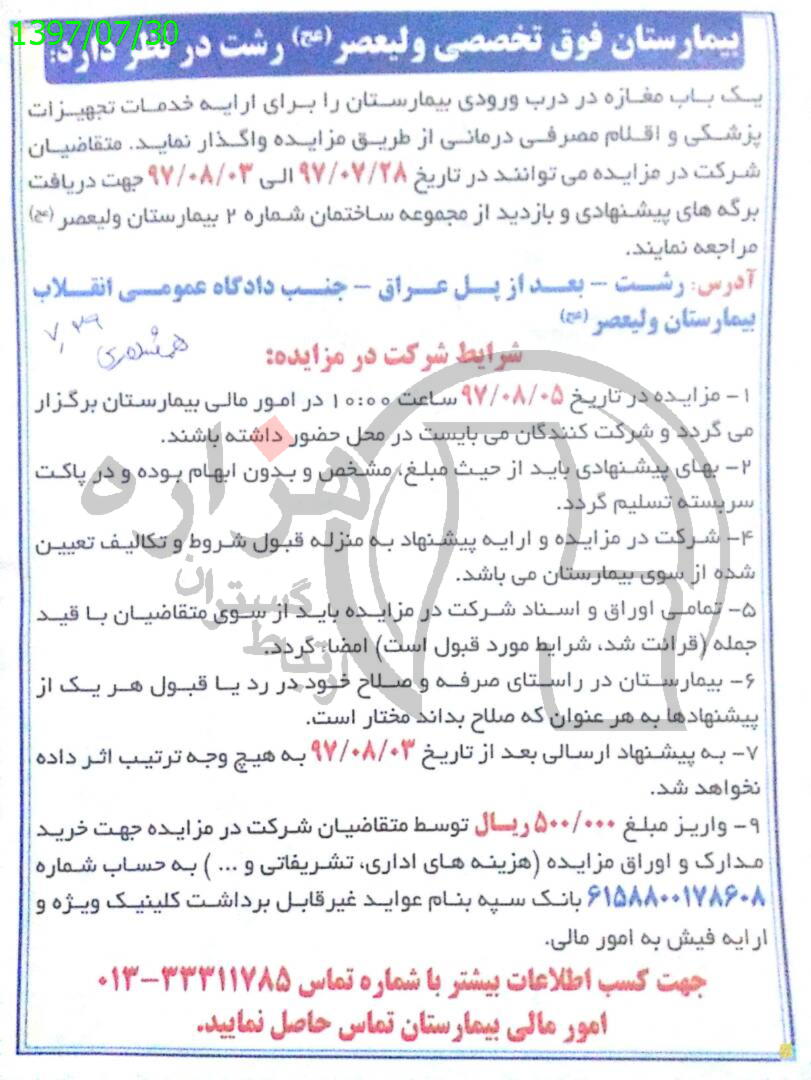 1397/07/30
بیمارستان فوق تخصصی ولیعصر (عج) رشت در نظر دارد:
یک باب مغازه در درب ورودی بیمارستان را برای ارایه خدمات تجهیزات
پزشکی و اقلام مصرفی درمانی از طریق مزایده واگذار نماید. متقاضیان
شرکت در مزایده می توانند در تاریخ ۹۷/۰۷/۲۸ الی ۹۷/۰۸/۰۳ جهت دریافت
برگه های پیشنهادی و بازدید از مجموعه ساختمان شماره ۲ بیمارستان ولیعصر (عج)
مراجعه نمایند.
آدرس: رشت – بعد از پل عراق – جنب دادگاه عمومی انقلاب
بیمارستان ولیعصر (عج)
همشهری ۷,۲۹
شرایط شرکت در مزایده:
۱– مزایده در تاریخ ۹۷/۰۸/۰۵ ساعت ۱۰:۰۰ در امور مالی بیمارستان برگزار
می گردد و شرکت کنندگان می بایست در محل حضور داشته باشند.
۲– بهای پیشنهادی باید از حیث مبلغ، مشخص و بدون ابهام بوده و در پاکت
سربسته تسلیم گردد.
۴– شرکت در مزایده و ارایه پیشنهاد به منزله قبول شروط و تکالیف تعیین
شده از سوی بیمارستان می باشد.
۵– تمامی اوراق و اسناد شرکت در مزایده باید از سوی متقاضیان با قید
جمله (قرائت شد، شرایط مورد قبول است) امضاء گردد.
۶– بیمارستان در راستای صرفه و صلاح خود در رد یا قبول هر یک از
پیشنهادها به هر عنوان که صلاح بداند مختار است.
۷– به پیشنهاد ارسالی بعد از تاریخ ۹۷/۰۸/۰۳ به هیچ وجه ترتیب اثر داده
نخواهد شد.
۹– واریز مبلغ ۵۰۰/۰۰۰ ریال توسط متقاضیان شرکت در مزایده جهت خرید
مدارک و اوراق مزایده (هزینه های اداری، تشریفاتی و ... ) به حساب شماره
۶۱۵۸۸۰۰۱۷۸۶۰۸ بانک سپه بنام عواید غیرقابل برداشت کلینیک ویژه و
ارایه فیش به امور مالی.
جهت کسب اطلاعات بیشتر با شماره تماس ۳۳۳۱۱۷۸۵–۰۱۳
امور مالی بیمارستان تماس حاصل نمایید.
هزاره
گستران
ارتباط